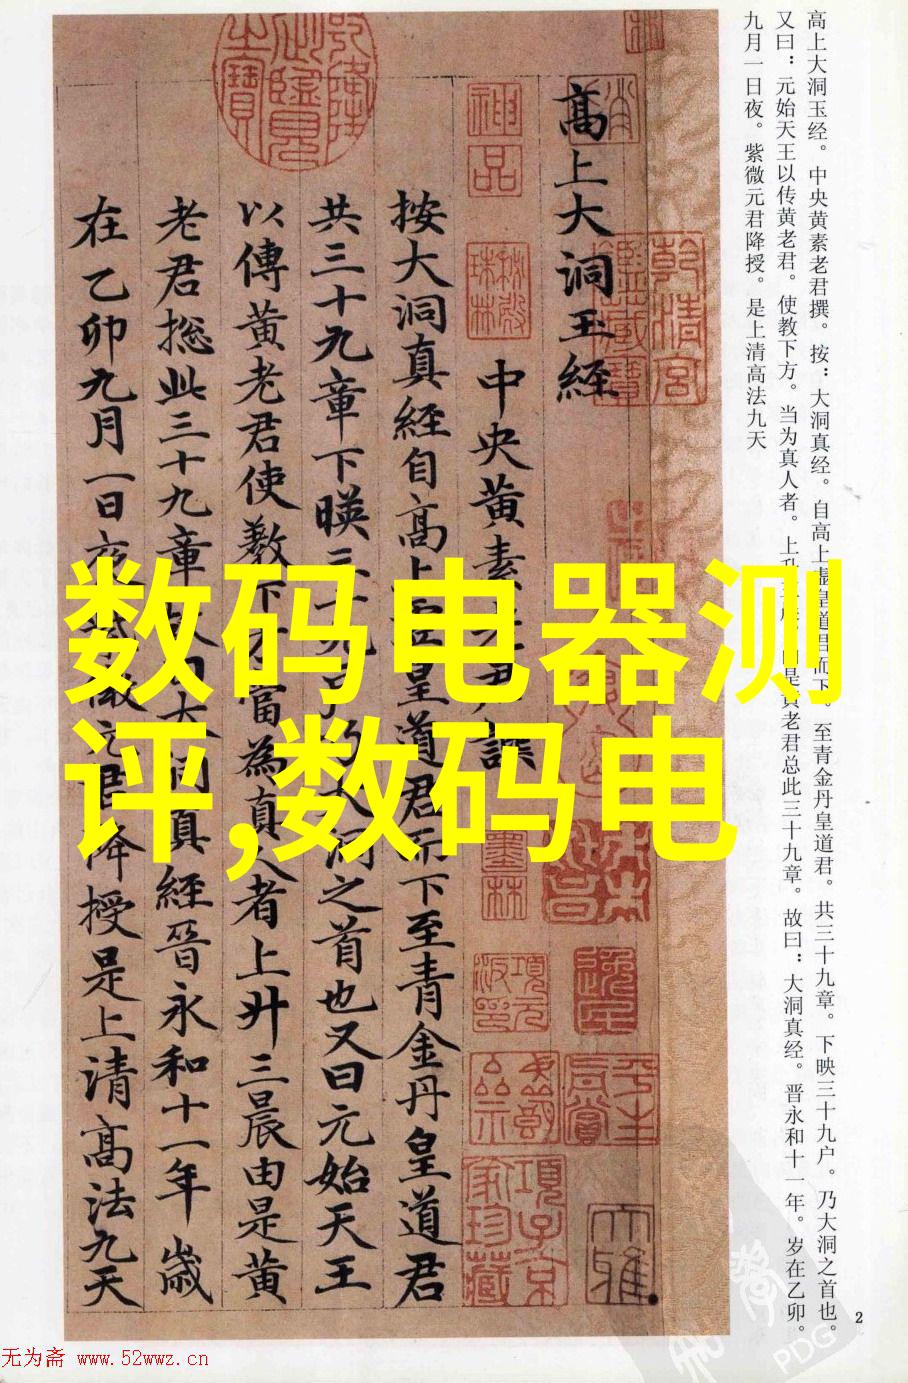 高上大洞玉经。中央黄素老君撰。按：大洞真经。自高上虚皇道君而下。至青金丹皇道君。共三十九章。下映三十九户。乃大洞之首也。
又曰：元始天王以传黄老君。使教下方。当为真人者。上升三晨。由是黄老君总此三十九章。故曰：大洞真经。晋永和十一年。岁在乙卯。
九月一日夜。紫微元君降授。是上清高法九天
高上大洞玉經
中央黃素老君譔
按大洞真經自高上虛皇道君而下至青金丹皇道君
共三十九章下暎三十九戶乃大洞之首也又曰元始天王
以傳黃老君使教下方當為真人者上升三晨由是黃
老君捴此三十九章故曰大洞真經晉永和十一年歲
在乙卯九月一日夜紫微元君降授是上清高法九天
神品
乾清宮鑑藏寶
墨林
項元汴印
子孫世昌
平生真賞
項子京家珍藏
数码电器测
评,数码电
2
PDG
无为斋 www.52wwz.cn